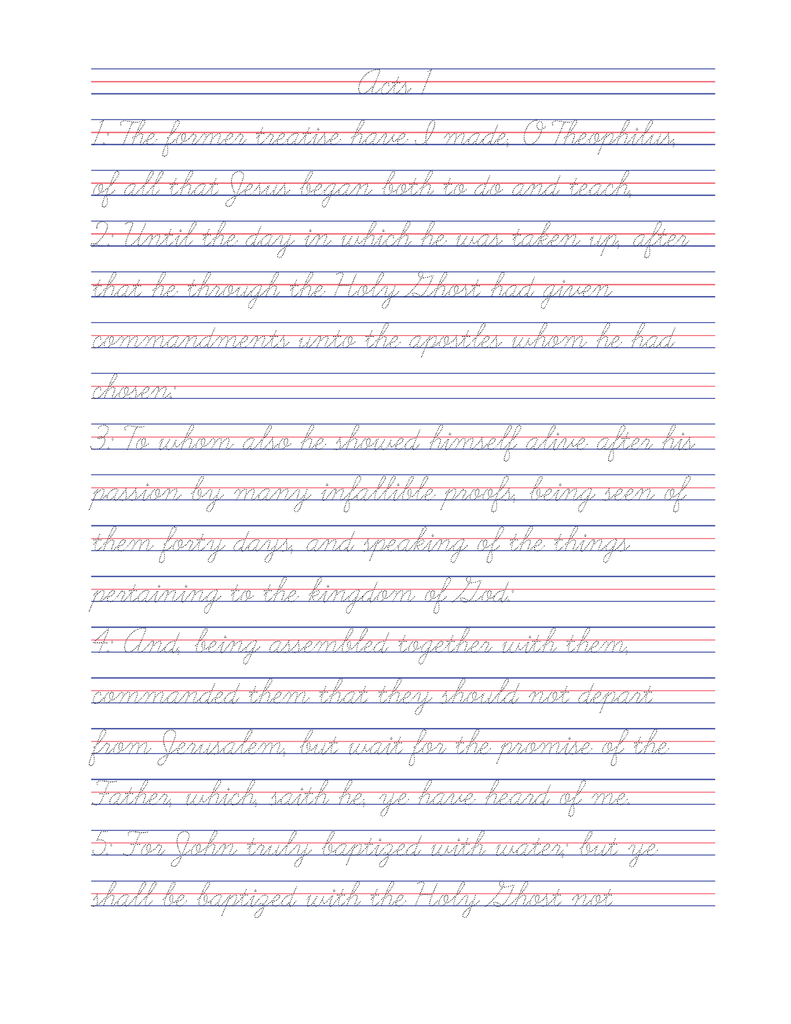 Acts 1
1: The former treatise have I made, O Theophilus,
of all that Jesus began both to do and teach,
2: Until the day in which he was taken up, after
that he through the Holy Ghost had given
commandments unto the apostles whom he had
chosen:
3: To whom also he showed himself alive after his
passion by many infallible proofs, being seen of
them forty days, and speaking of the things
pertaining to the kingdom of God:
4: And, being assembled together with them,
commanded them that they should not depart
from Jerusalem, but wait for the promise of the
Father, which, saith he, ye have heard of me.
5: For John truly baptized with water; but ye
shall be baptized with the Holy Ghost not